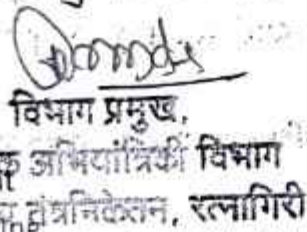 विभाग प्रमुख,
अभियांत्रिकी विभाग
तंत्रनिकेतन, रत्नागिरी